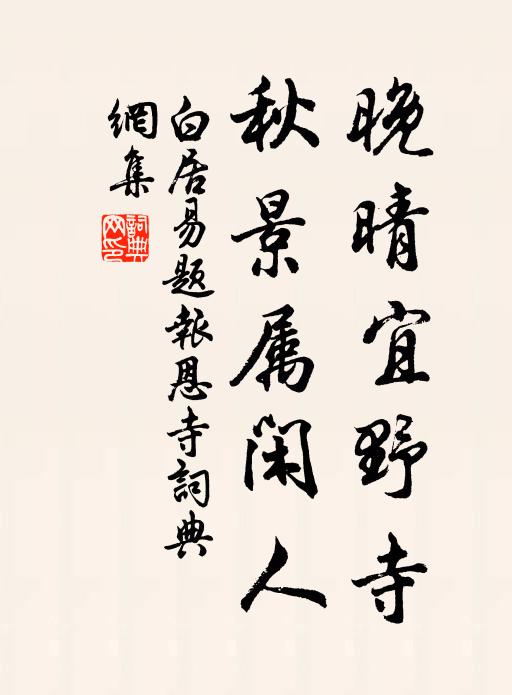 晚晴宜野寺
秋景属闲人
白居易题報恩寺詞典
網集
詞典
网印